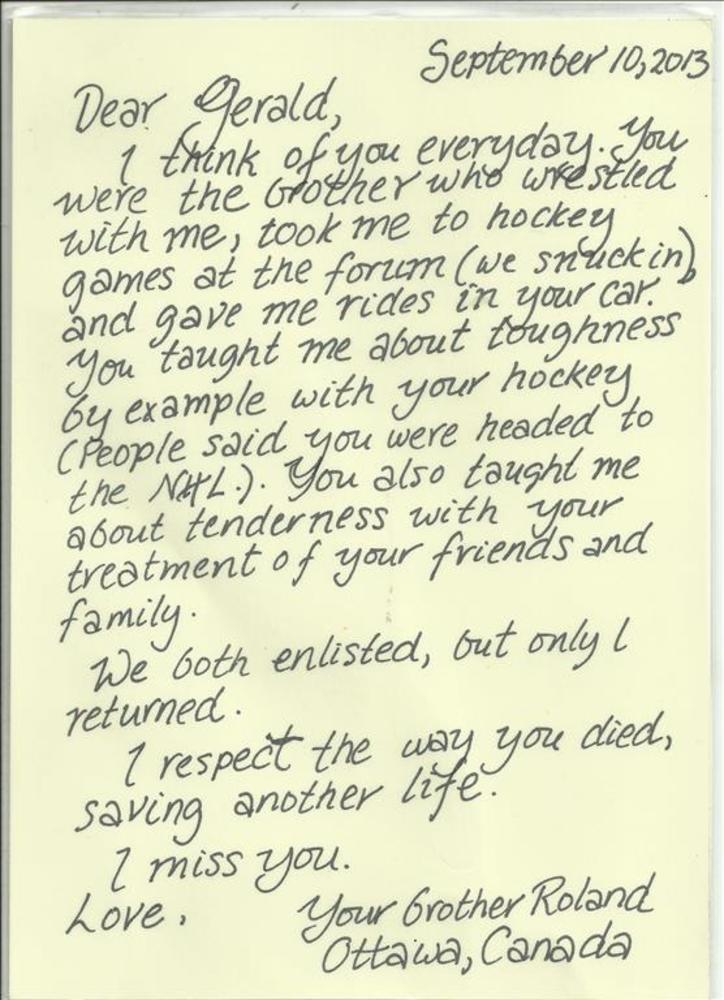 September 10, 2013
Dear Gerald,
I think of you everyday. You
were the brother who wrestled
with me, took me to hockey
games at the forum (we snuck in),
and gave me rides in your car.
You taught me about toughness
by example with your hockey
(People said you were headed to
the NHL.). You also taught me
about tenderness with your
treatment of your friends and
family.
We both enlisted, but only I
returned.
I respect the way you died,
saving another life.
I miss you.
Love, Your brother Roland
Ottawa, Canada